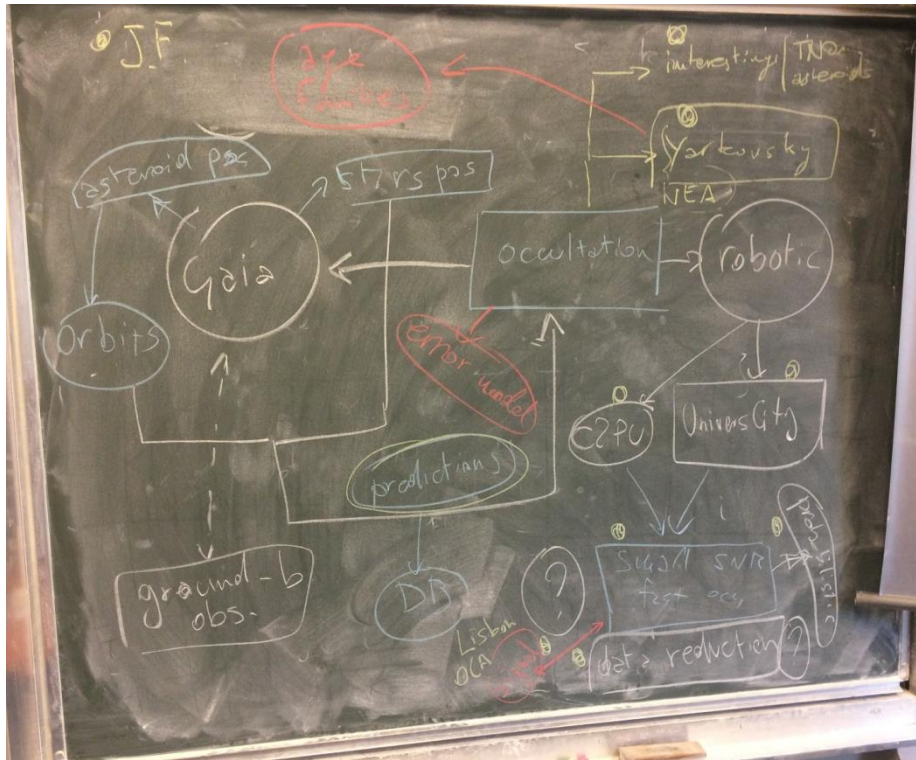 J.F
age
families
interesting TNOs
asteroids
Yarkovsky
NEA
asteroid pos
stars pos
Gaia
occultation
robotic
Orbits
error model
C2PU
UniversCity
predictions
ground-b
obs.
DR
?
Small SNR
fast occ,
Lisbon
OCA
data reduction
?